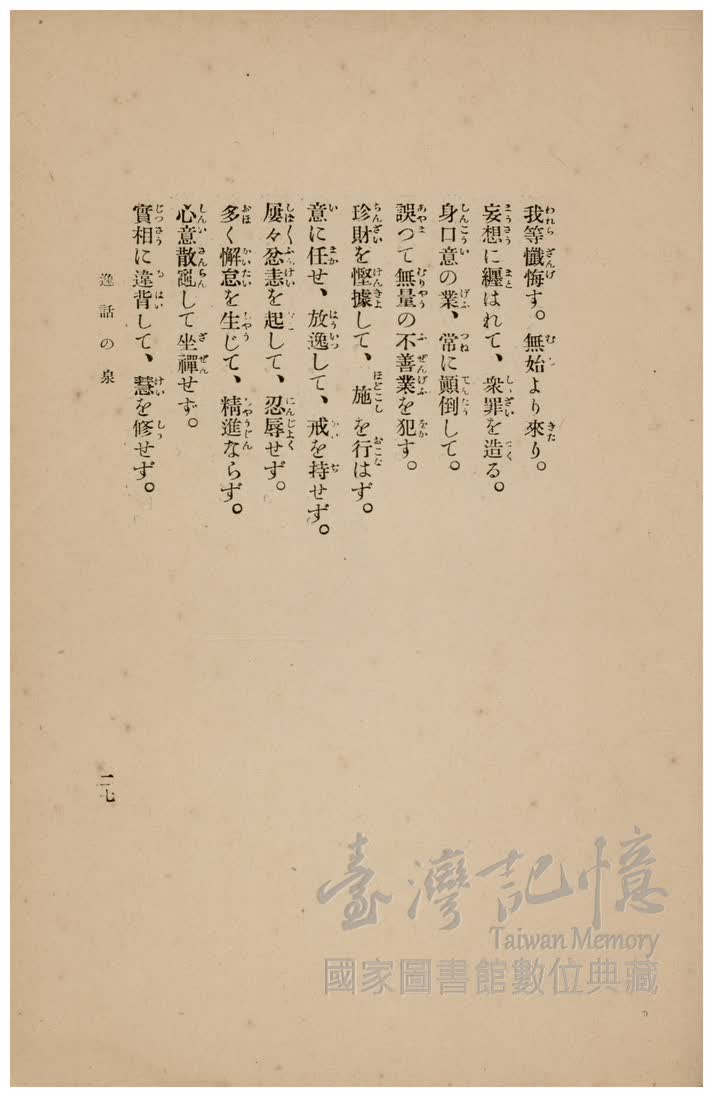 我等懺悔す。無始より來り。
妄想に纒はれて、衆罪を造る。
身口意の業、常に顚倒して。
誤つて無量の不善業を犯す。
珍財を慳據して、施を行はず。
意に任せ、放逸して、戒を持せず。
屢々忿恚を起して、忍辱せず。
多く懈怠を生じて、精進ならず。
心意散亂して坐禪せず。
實相に違背して、慧を修せず。
逸話の泉
二七
臺灣記憶
Taiwan Memory
國家圖書館數位典藏